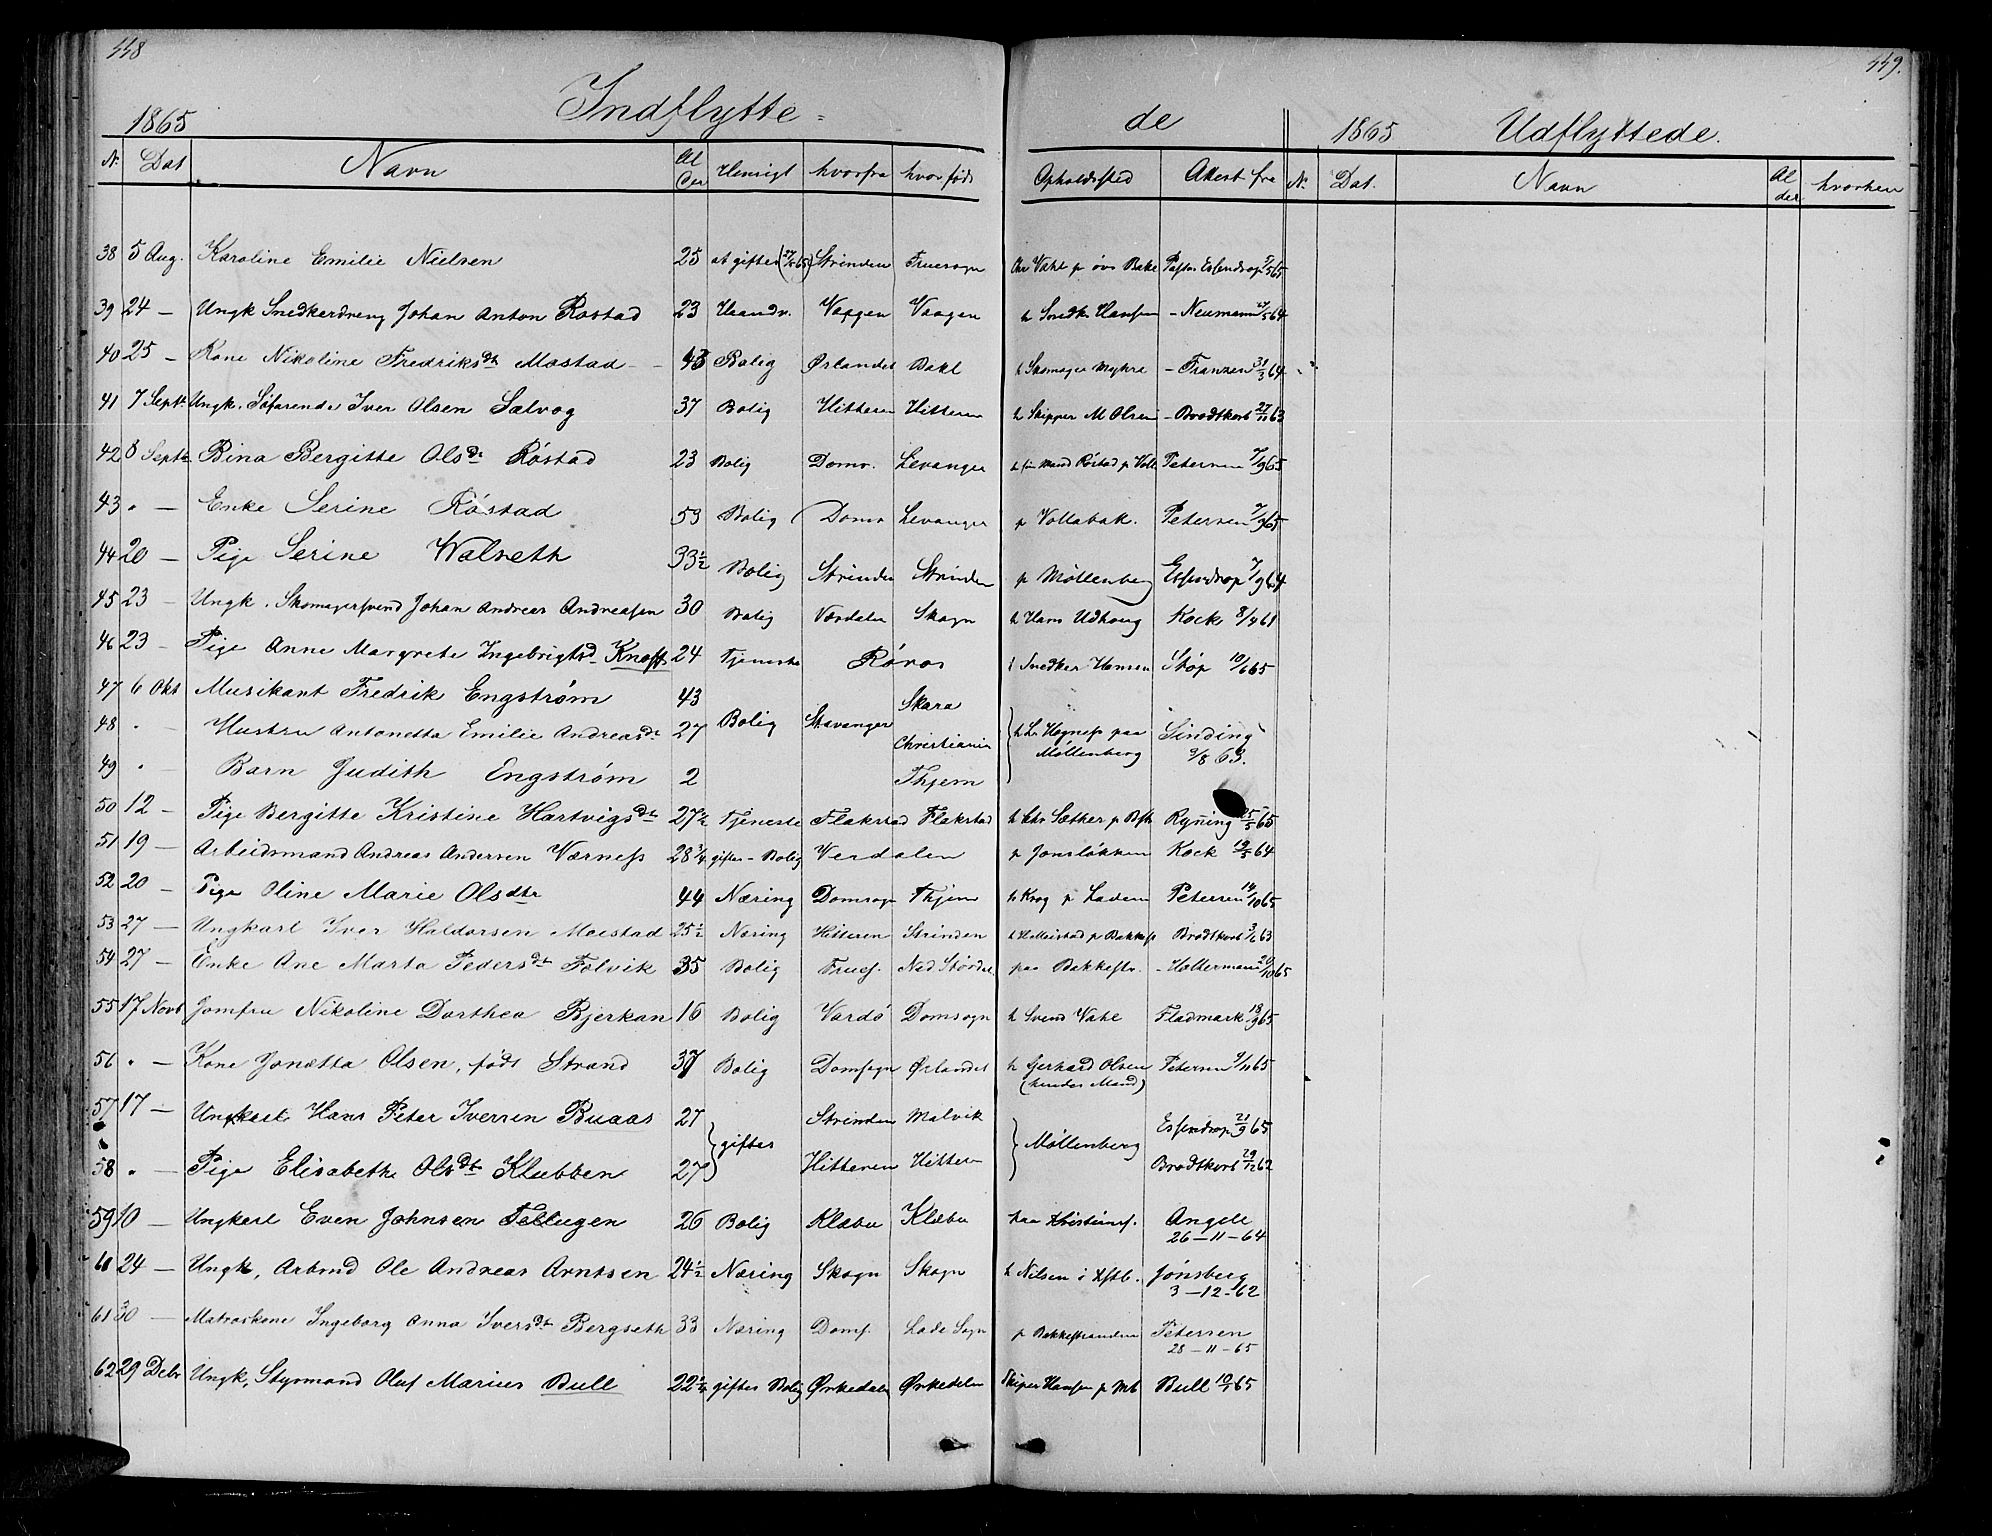 448
449.
1865 Indflytte= de 1865 Udflyttede.
N. Dat Navn Al der Hensigt hvorfra hvor født Opholdssted Attest fra N. Dat. Navn Al der hvorhen
38 5 Aug. Karoline Emilie Nielsen 25 at giftes Strinden Fruesogn Vahl p øvr Bake Pastor Essendrop 65
39 24 — Ungk Snedkerdreng Johan Anton Rostad 23 Haandv. Vaagen Vaagen h Snedk Hansen — Neumann 64
40 25 — Kone Nikoline Fredriksdt Mostad 43 Bolig Ørlandet Bakl h Skomager Myhre — Franzen 31/3 64
41 7 Septr. Ungk. Søfarende Iver Olsen Selvog 37 Bolig Hitteren Hitteren h Skipper M Olsen — Brodtkorb 27/11 63
42 8 Septr Bina Bergitte Olsdt Røstad 23 Bolig Domk. Levanger h sin Mand Røstad p Voll Petersen 7/9 65
43 " — Enke Serine Røstad 53 Bolig Domk Levanger p Vollabak. Petersen 7/9 65
44 20 — Pige Serine Walseth 33½ Bolig Strinden Strinden p Møllenberg Essendrop 7/9 64
45 23 — Ungk. Skomagersvend Johan Andreas Andreasen 30 Bolig Værdalen Skogn h Hans Udhoug Kock 8/4 61
46 23 — Pige Anne Margrete Ingebrigtsd Knoff 24 Tjeneste Røros h Snedker Hansen Støp 10/6 65
47 6 Okt Musikant Fredrik Engstrøm 43 Skara
48 " — Hustru Antonetta Emilie Andreasdt 27 Bolig Stavanger Christiania h L. Hognes paa Møllenberg Sinding 3/8 63.
49 " — Barn Judith Engstrøm 2 Thjem
50 12 — Pige Bergitte Kristine Hartvigsdt 27½ Tjeneste Flakstad Flakstad h Chr Sæther p Bkst Ryning 25/5 65
51 19 — Arbeidsmand Andreas Andersen Værness 28¾ giftes - Bolig Verdalen p Jonsløkken Kock 19/5 64
52 20 — Pige Oline Marie Olsdtr 44 Næring Domsogn Thjem h Krog p Laden Petersen 14/10 65
53 27 — Ungkarl Iver Haldorsen Moestad 25½ Næring Hitteren Strinden h H Moestad p Bakkest Brodtkorb 3/6 63
54 27 — Enke Ane Marta Pedersdt Folvik 35 Bolig Frues. Ned Størdal paa Bakkestr. — Haltermann 20/10 65
55 17 Novb Jomfru Nikoline Dorthea Bjerkan 16 Bolig Vardø Domsogn h Svend Vahl Fladmark 18/9 65
56 " — Kone Jonetta Olsen, født Strand 37 Bolig Domsogn Ørlandet h Gerhard Olsen (hendes Mand) Petersen 9/11 65
57 17 — Ungkarl Hans Peter Iversen Buaas 27 giftes Strinden Malvik Møllenberg Essendrop 21/9 65
58 " — Pige Elisabeth Olsdt Klubben 27 Hitteren Hitteren Brodtkorb 29/12 62
59 10 — Ungkarl Even Johnsen Tellugen 26 Bolig Klæbu Klæbu paa Kristiansf. Angell 26-11-64
24 — Ungk, Arbmd Ole Andreas Arntsen 24½ Næring Skogn Skogn h Nilsen i Kftb. Jønsberg 3-12-62
61 30 — Matroskone Ingeborg Anna Iversdt Bergseth 33 Næring Doms. Lade Sogn p Bakkestranden Petersen 28-11-65
62 29 Debr Ungk, Styrmand Oluf Marius Bull 22¼ giftes Bolig Ørkedalen Ørkedalen Skiper Hansen p Mb Bull 65